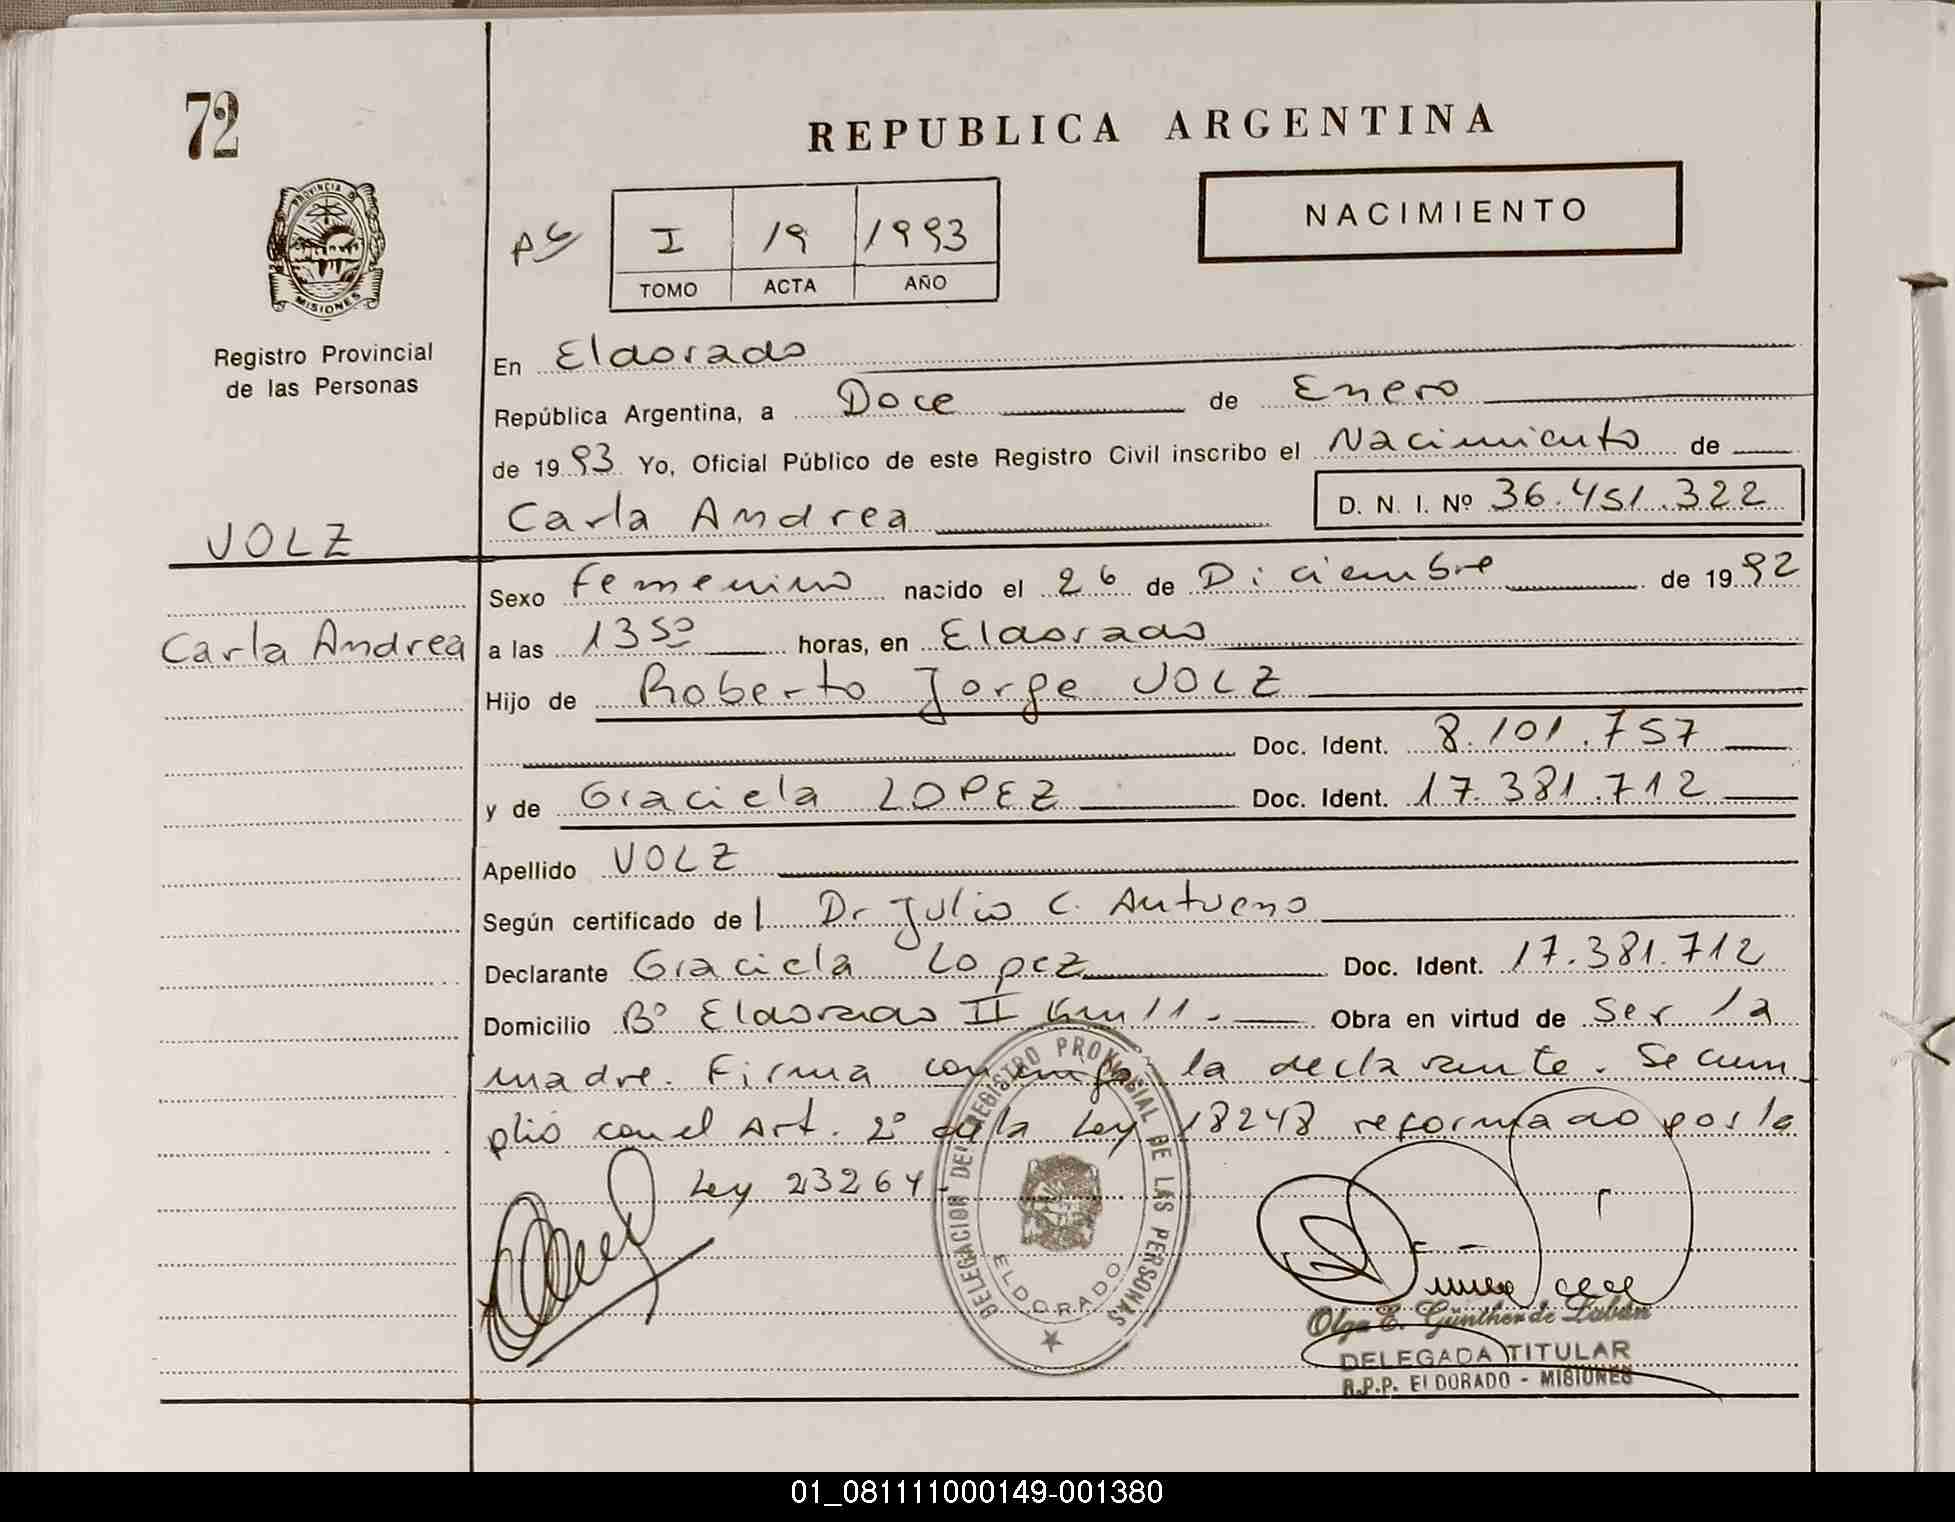 72
REPUBLICA ARGENTINA
PROVINCIA D
MISIONES
Registro Provincial
de las Personas
I 19 1993
TOMO ACTA AÑO
NACIMIENTO
En Eldorado
República Argentina, a Doce de Enero
de 1993 Yo, Oficial Público de este Registro Civil inscribo el Nacimiento de
Carla Andrea D. N. I. Nº 36.451.322
VOLZ
Carla Andrea
Sexo Femenino nacido el 26 de Diciembre de 1992
a las 13 50 horas, en Eldorado
Hijo de Roberto Jorge VOLZ
Doc. Ident. 8.101.757
y de Graciela LOPEZ Doc. Ident. 17.381.712
Apellido VOLZ
Según certificado de l Dr Julio C. Antueno
Declarante Graciela Lopez Doc. Ident. 17.381.712
Domicilio Bº Eldorado II Km 11.- Obra en virtud de Ser la
madre. Firma conmigo la declarante. Se cum
plió con el Art. 2º de la Ley 18248 reformado por la
Ley 23264.-
DELEGACION DEL REGISTRO PROVINCIAL DE LAS PERSONAS
ELDORADO
Olga E. Günther de Laban
DELEGADA TITULAR
R.P.P. ELDORADO - MISIONES
01_081111000149-001380